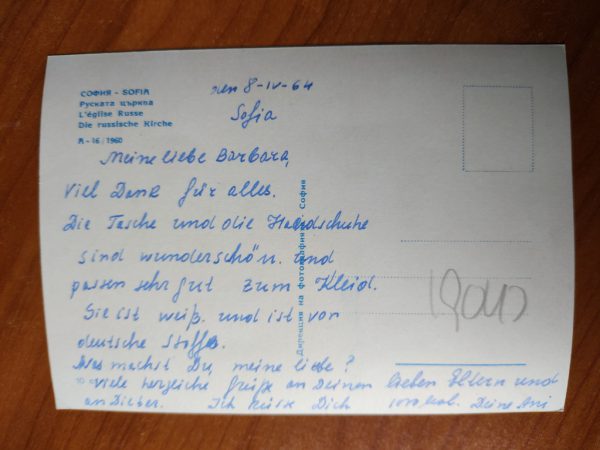 СОФИЯ - SOFIA
Руската църква
L'église Russe
Die russische Kirche
A-16/1960
den 8-IV-64
Sofia
Meine liebe Barbara,
Viel Dank für alles.
Die Tasche und die Handschuhe
sind wunderschön. und
passen sehr gut zum Kleid.
Sie ist weiß. und ist von
deutsche Stoffe.
Was machst Du, meine liebe?
Viele herzliche Grüße an Deinen lieben Eltern und
an Dieter. Ich küsse Dich 1000 mal. Deine Ani
Дирекция на фотографията София